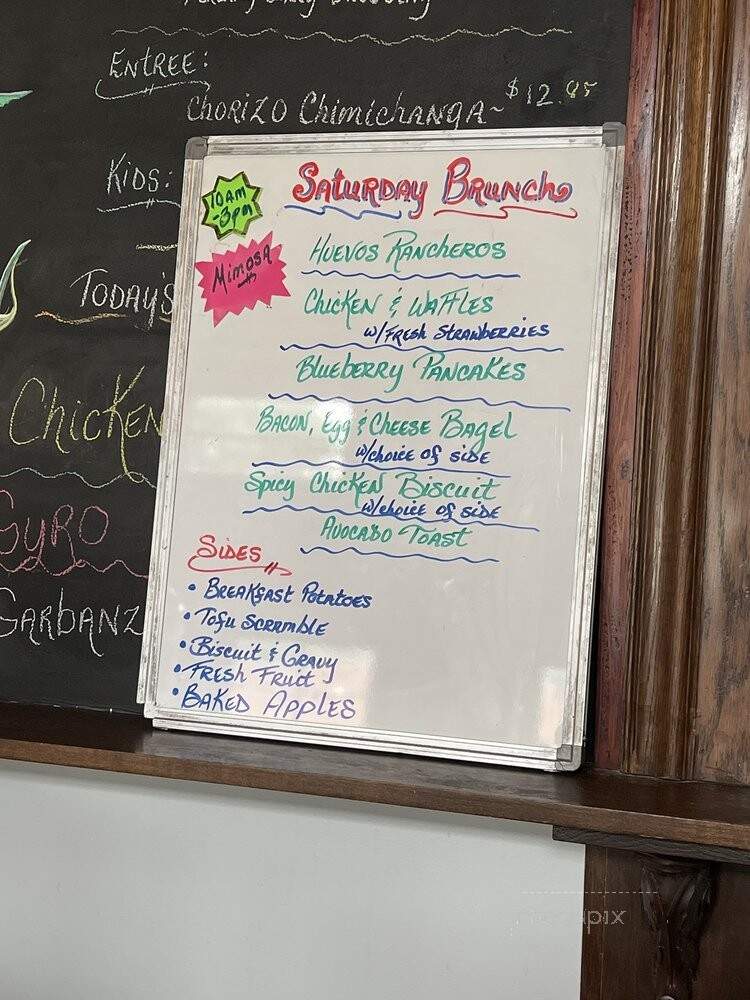 Entree:
Chorizo Chimichanga~ $12.95
Kids:
Today's
Chicken
Gyro
Garbanz
10am
-3pm
Mimosa
Saturday Brunch
Huevos Rancheros
Chicken & Waffles
w/Fresh Strawberries
Blueberry Pancakes
Bacon, Egg & Cheese Bagel
w/choice of side
Spicy Chicken Biscuit
w/choice of side
Avocado Toast
Sides
• Breakfast Potatoes
• Tofu Scramble
• Biscuit & Gravy
• Fresh Fruit
• Baked Apples